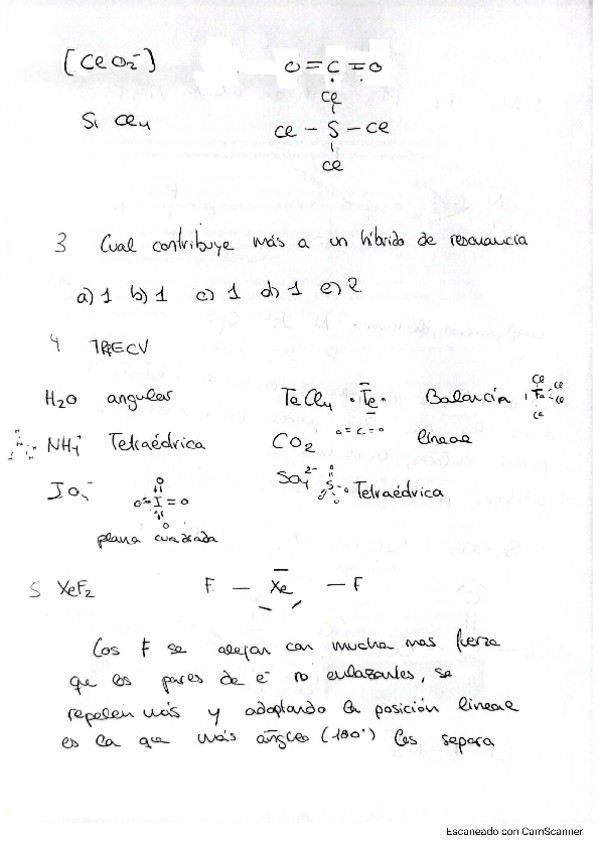 [ClO2-) O=C=O
Cl
Si Cl4 Cl - S - Cl
Cl
3 Cual contribuye más a un híbrido de resonancia
a) 1 b) 1 c) 1 d) 1 e) 2
4 TRECV
H2O angular TeCl4 •Te• Balancín Cl Te Cl Cl Cl
NH4+ Tetraédrica CO2 O=C=O lineal
IO4- O O=I=O O SO4 2- S Tetraédrica
plana cuadrada
5 XeF2 F — Xe — F
Los F se alejan con mucha mas fuerza
que los pares de e- no enlazantes, se
repelen más y adoptando la posición lineal
es la que más ángulo (180°) les separa
Escaneado con CamScanner